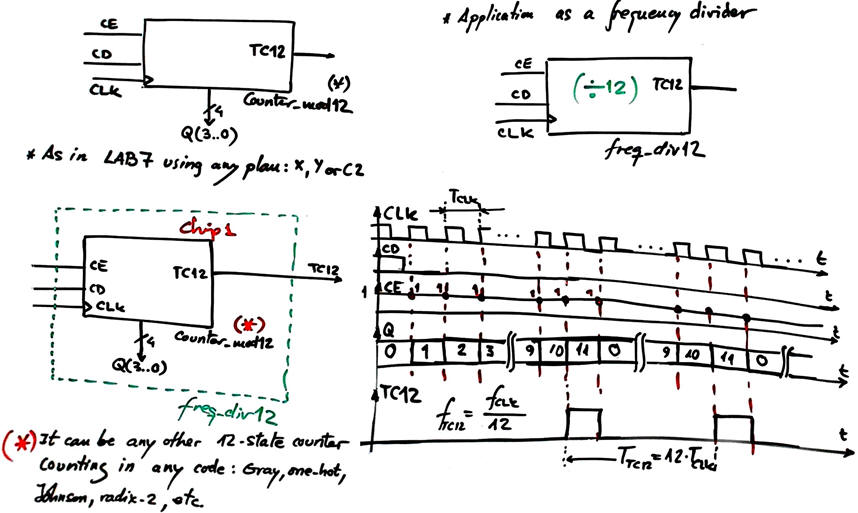 CE
CD
CLK
TC12
(*)
4
Counter_mod12
Q(3..0)
* As in LAB7 using any plan: X, Y or C2
* Application as a frequency divider
CE
CD
CLK
(÷12)
TC12
freq_div12
Chip1
CE
CD
CLK
TC12
TC12
(*)
4
Counter_mod12
Q(3..0)
freq_div12
(*) It can be any other 12-state counter
counting in any code: Gray, one-hot,
Johnson, radix-2, etc.
CLK
TCLK
t
CD
t
1 CE 1 1 1 1 1 1
t
Q
0 1 2 3 9 10 11 0 9 10 11 0
t
TC12
fTC12 = fCLK / 12
t
TTC12 = 12·TCLK